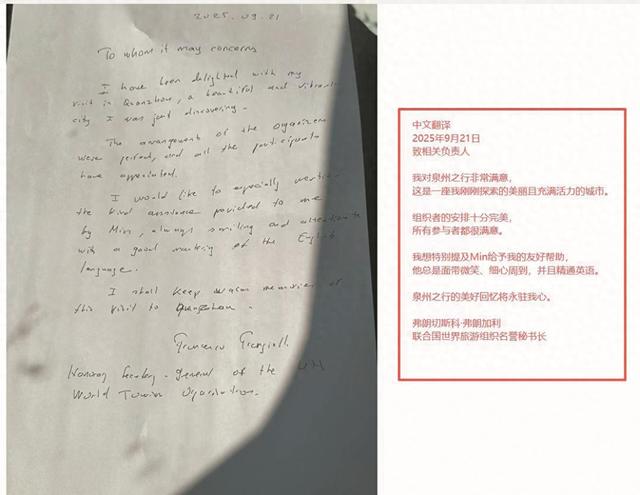 2025.09.21
To whom it may concerns
I have been delighted with my
visit in Quanzhou, a beautiful and vibrant
city I was just discovering.
The arrangements of the organizers
were perfect, and all the participants
have appreciated.
I would like to especially mention
the kind assistance provided to me
by Min, always smiling and attentive
with a good mastering of the English
language.
I shall keep warm memories of
this visit to Quanzhou.
Francesco Frangialli
Honorary Secretary-General of the UN
World Tourism Organization.
中文翻译
2025年9月21日
致相关负责人
我对泉州之行非常满意，
这是一座我刚刚探索的美丽且充满活力的城市。
组织者的安排十分完美，
所有参与者都很满意。
我想特别提及Min给予我的友好帮助，
他总是面带微笑、细心周到，并且精通英语。
泉州之行的美好回忆将永驻我心。
弗朗切斯科·弗朗加利
联合国世界旅游组织名誉秘书长